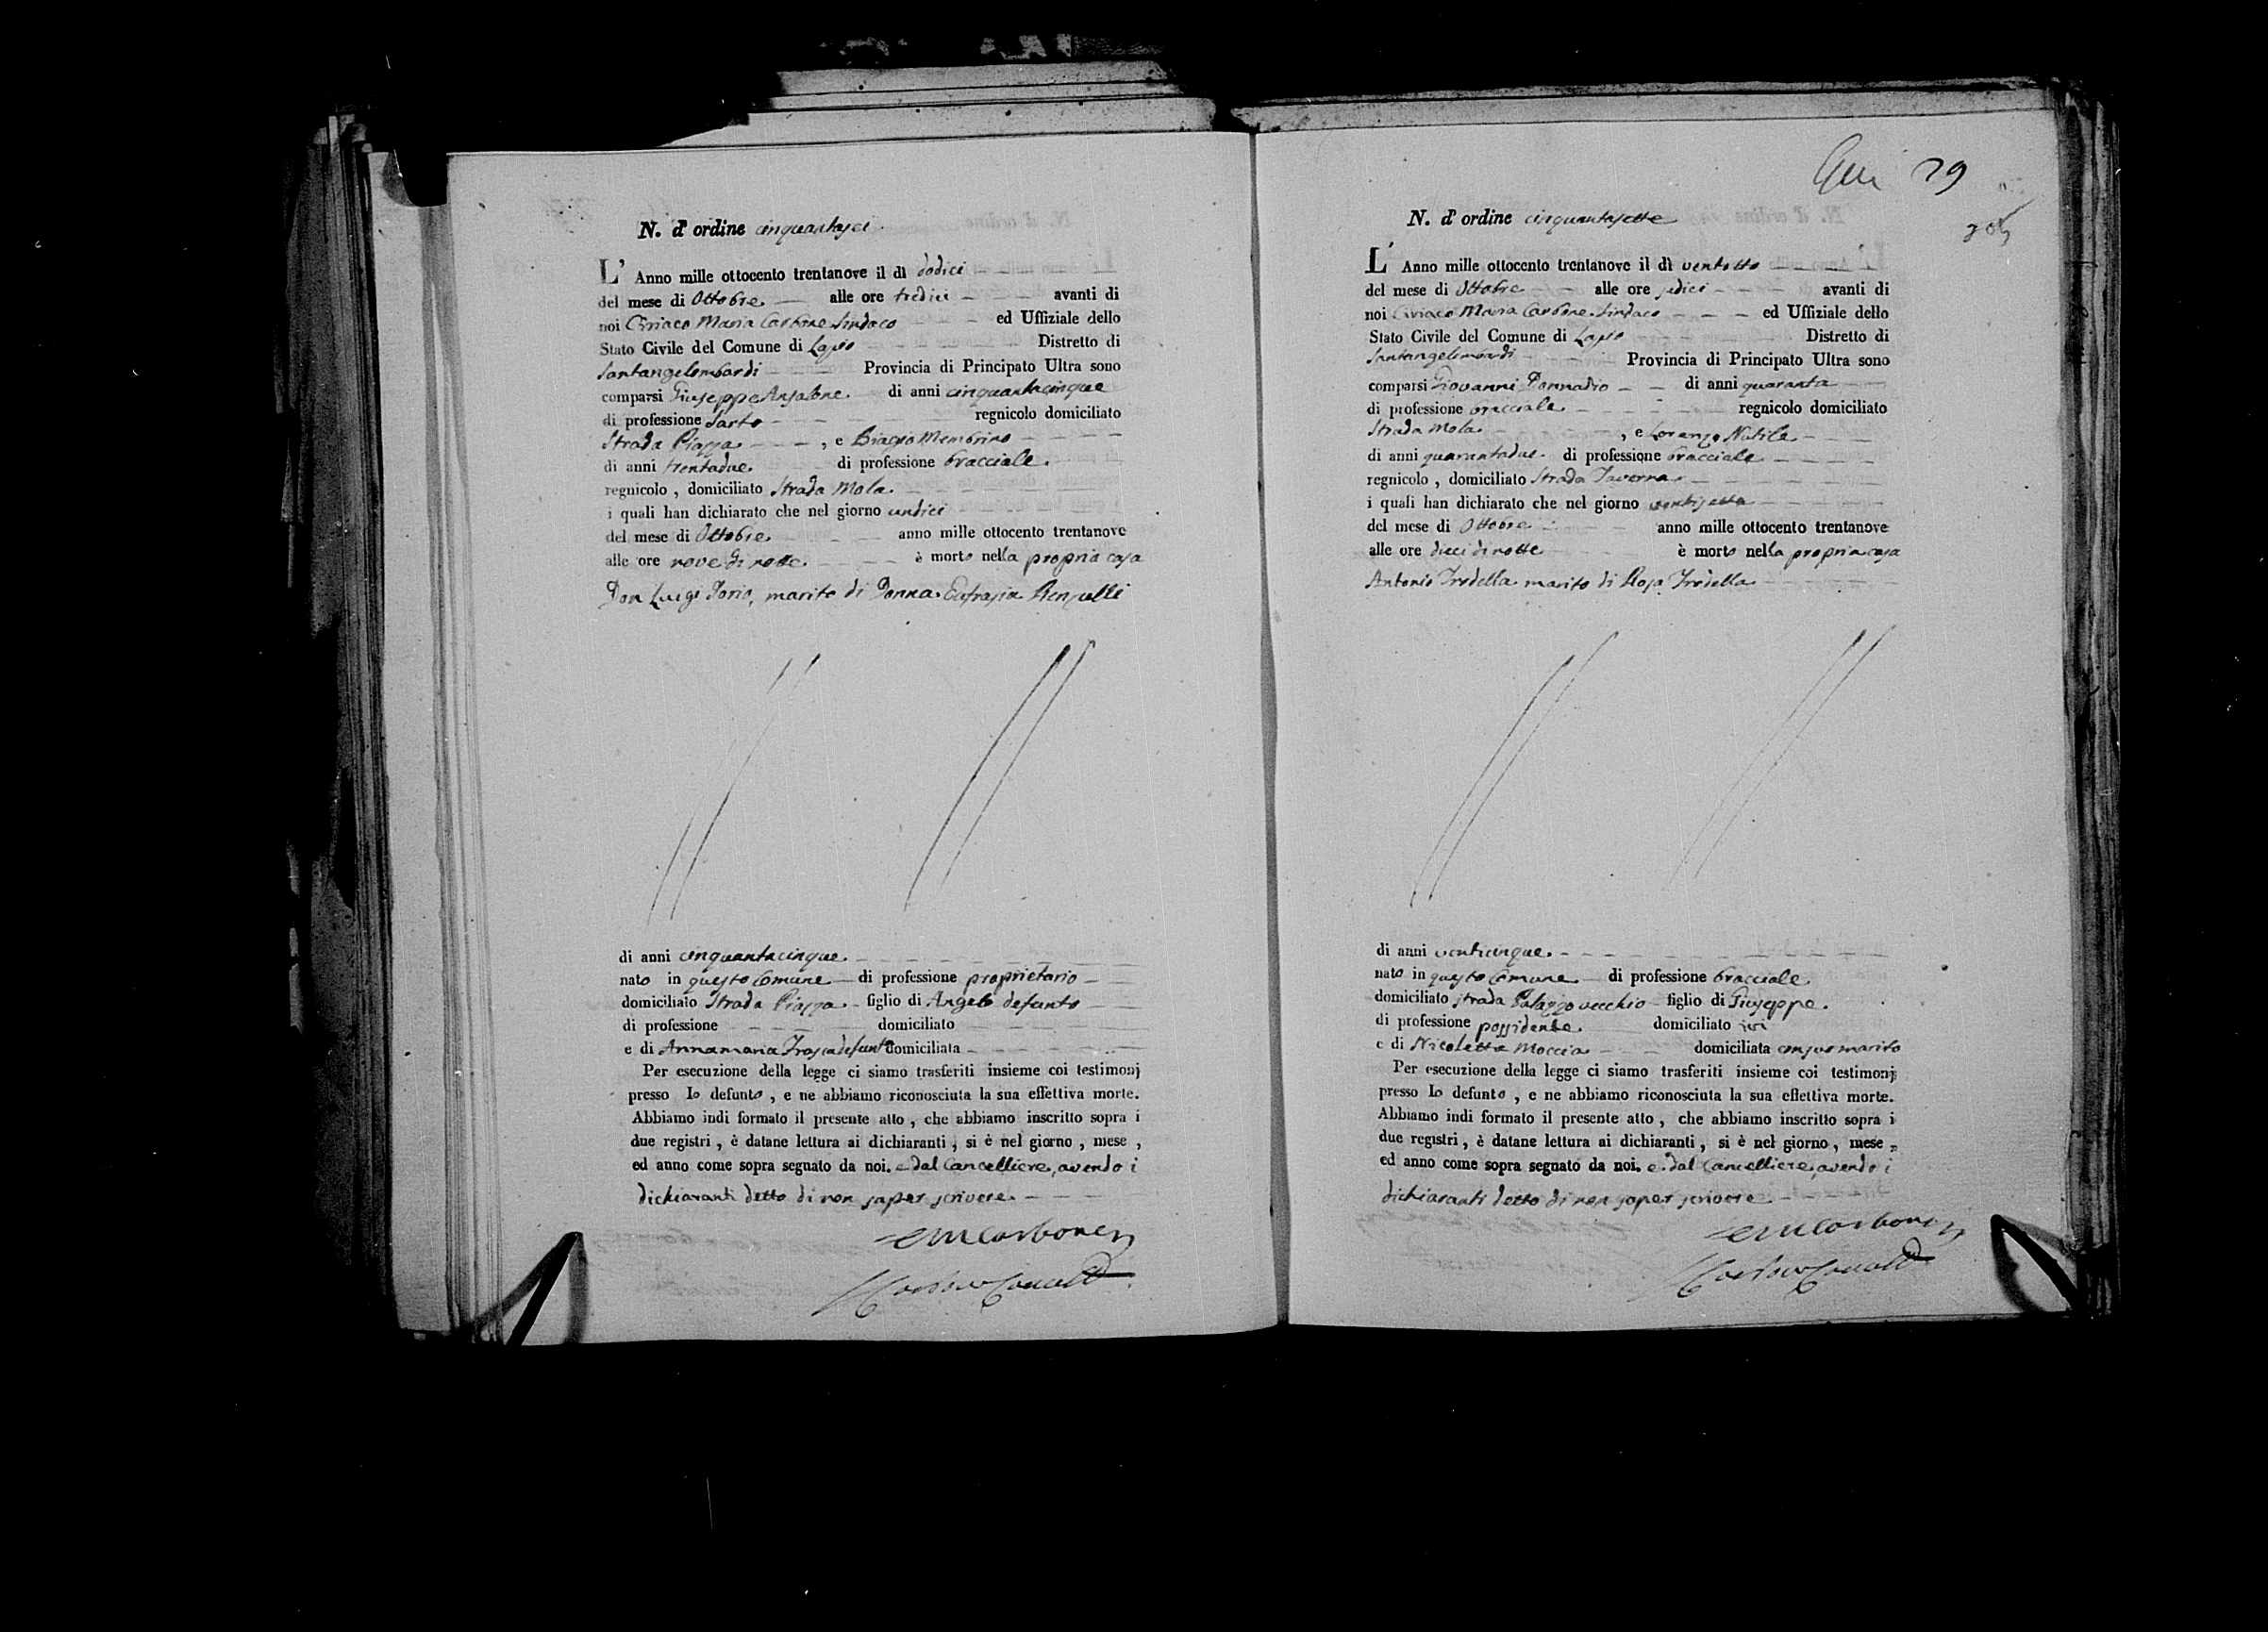 N. d' ordine cinquantasei
L' Anno mille ottocento trentanove il dì dodici
del mese di Ottobre alle ore tredici avanti di
noi Ciriaco Maria Carbone Sindaco ed Uffiziale dello
Stato Civile del Comune di Lapio Distretto di
Santangelombardi Provincia di Principato Ultra sono
comparsi Giuseppe Anzalone di anni cinquantacinque
di professione Sarto regnicolo domiciliato
Strada Piazza , e Biagio Membrino
di anni trentadue di professione bracciale
regnicolo , domiciliato Strada Mola
i quali han dichiarato che nel giorno undici
del mese di Ottobre anno mille ottocento trentanove
alle ore nove di notte è morto nella propria casa
Don Luigi Iorio, marito di Donna Eufrasia Renzulli
di anni cinquantacinque
nato in questo Comune di professione proprietario
domiciliato Strada Piazza figlio di Angelo defunto
di professione domiciliato
e di Annamaria defunta domiciliata
Per esecuzione della legge ci siamo trasferiti insieme coi testimonj
presso lo defunto , e ne abbiamo riconosciuta la sua effettiva morte.
Abbiamo indi formato il presente atto , che abbiamo inscritto sopra i
due registri , è datane lettura ai dichiaranti , si è nel giorno , mese ,
ed anno come sopra segnato da noi. e dal Cancelliere, avendo i
dichiaranti detto di non saper scrivere
CMCarbone
N. d' ordine cinquantasette
L' Anno mille ottocento trentanove il dì ventotto
del mese di Ottobre alle ore sedici avanti di
noi Ciriaco Maria Carbone Sindaco ed Uffiziale dello
Stato Civile del Comune di Lapio Distretto di
Santangelombardi Provincia di Principato Ultra sono
comparsi Giovanni Donnadio di anni quaranta
di professione bracciale regnicolo domiciliato
Strada Mola , e Lorenzo Nobile
di anni quarantadue di professione bracciale
regnicolo , domiciliato Strada Taverna
i quali han dichiarato che nel giorno ventisette
del mese di Ottobre anno mille ottocento trentanove
alle ore dieci di notte è morto nella propria casa
Antonio Trodella marito di Rosa Trodella
di anni venticinque
nato in questo Comune di professione bracciale
domiciliato strada Palazzo vecchio figlio di Giuseppe
di professione possidente domiciliato ivi
e di Nicoletta Moccia domiciliata con suo marito
Per esecuzione della legge ci siamo trasferiti insieme coi testimonj
presso lo defunto , e ne abbiamo riconosciuta la sua effettiva morte.
Abbiamo indi formato il presente atto , che abbiamo inscritto sopra i
due registri , è datane lettura ai dichiaranti , si è nel giorno , mese ,
ed anno come sopra segnato da noi. e dal Cancelliere, avendo i
dichiaranti detto di non saper scrivere
CMCarbone
29